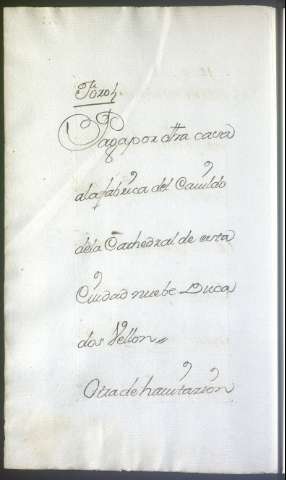 Paga por otra cassa
a la fabrica del Cauildo
de la Cathedral de esta
Ciudad nuebe Duca
dos Vellon
Otra de hauitazión